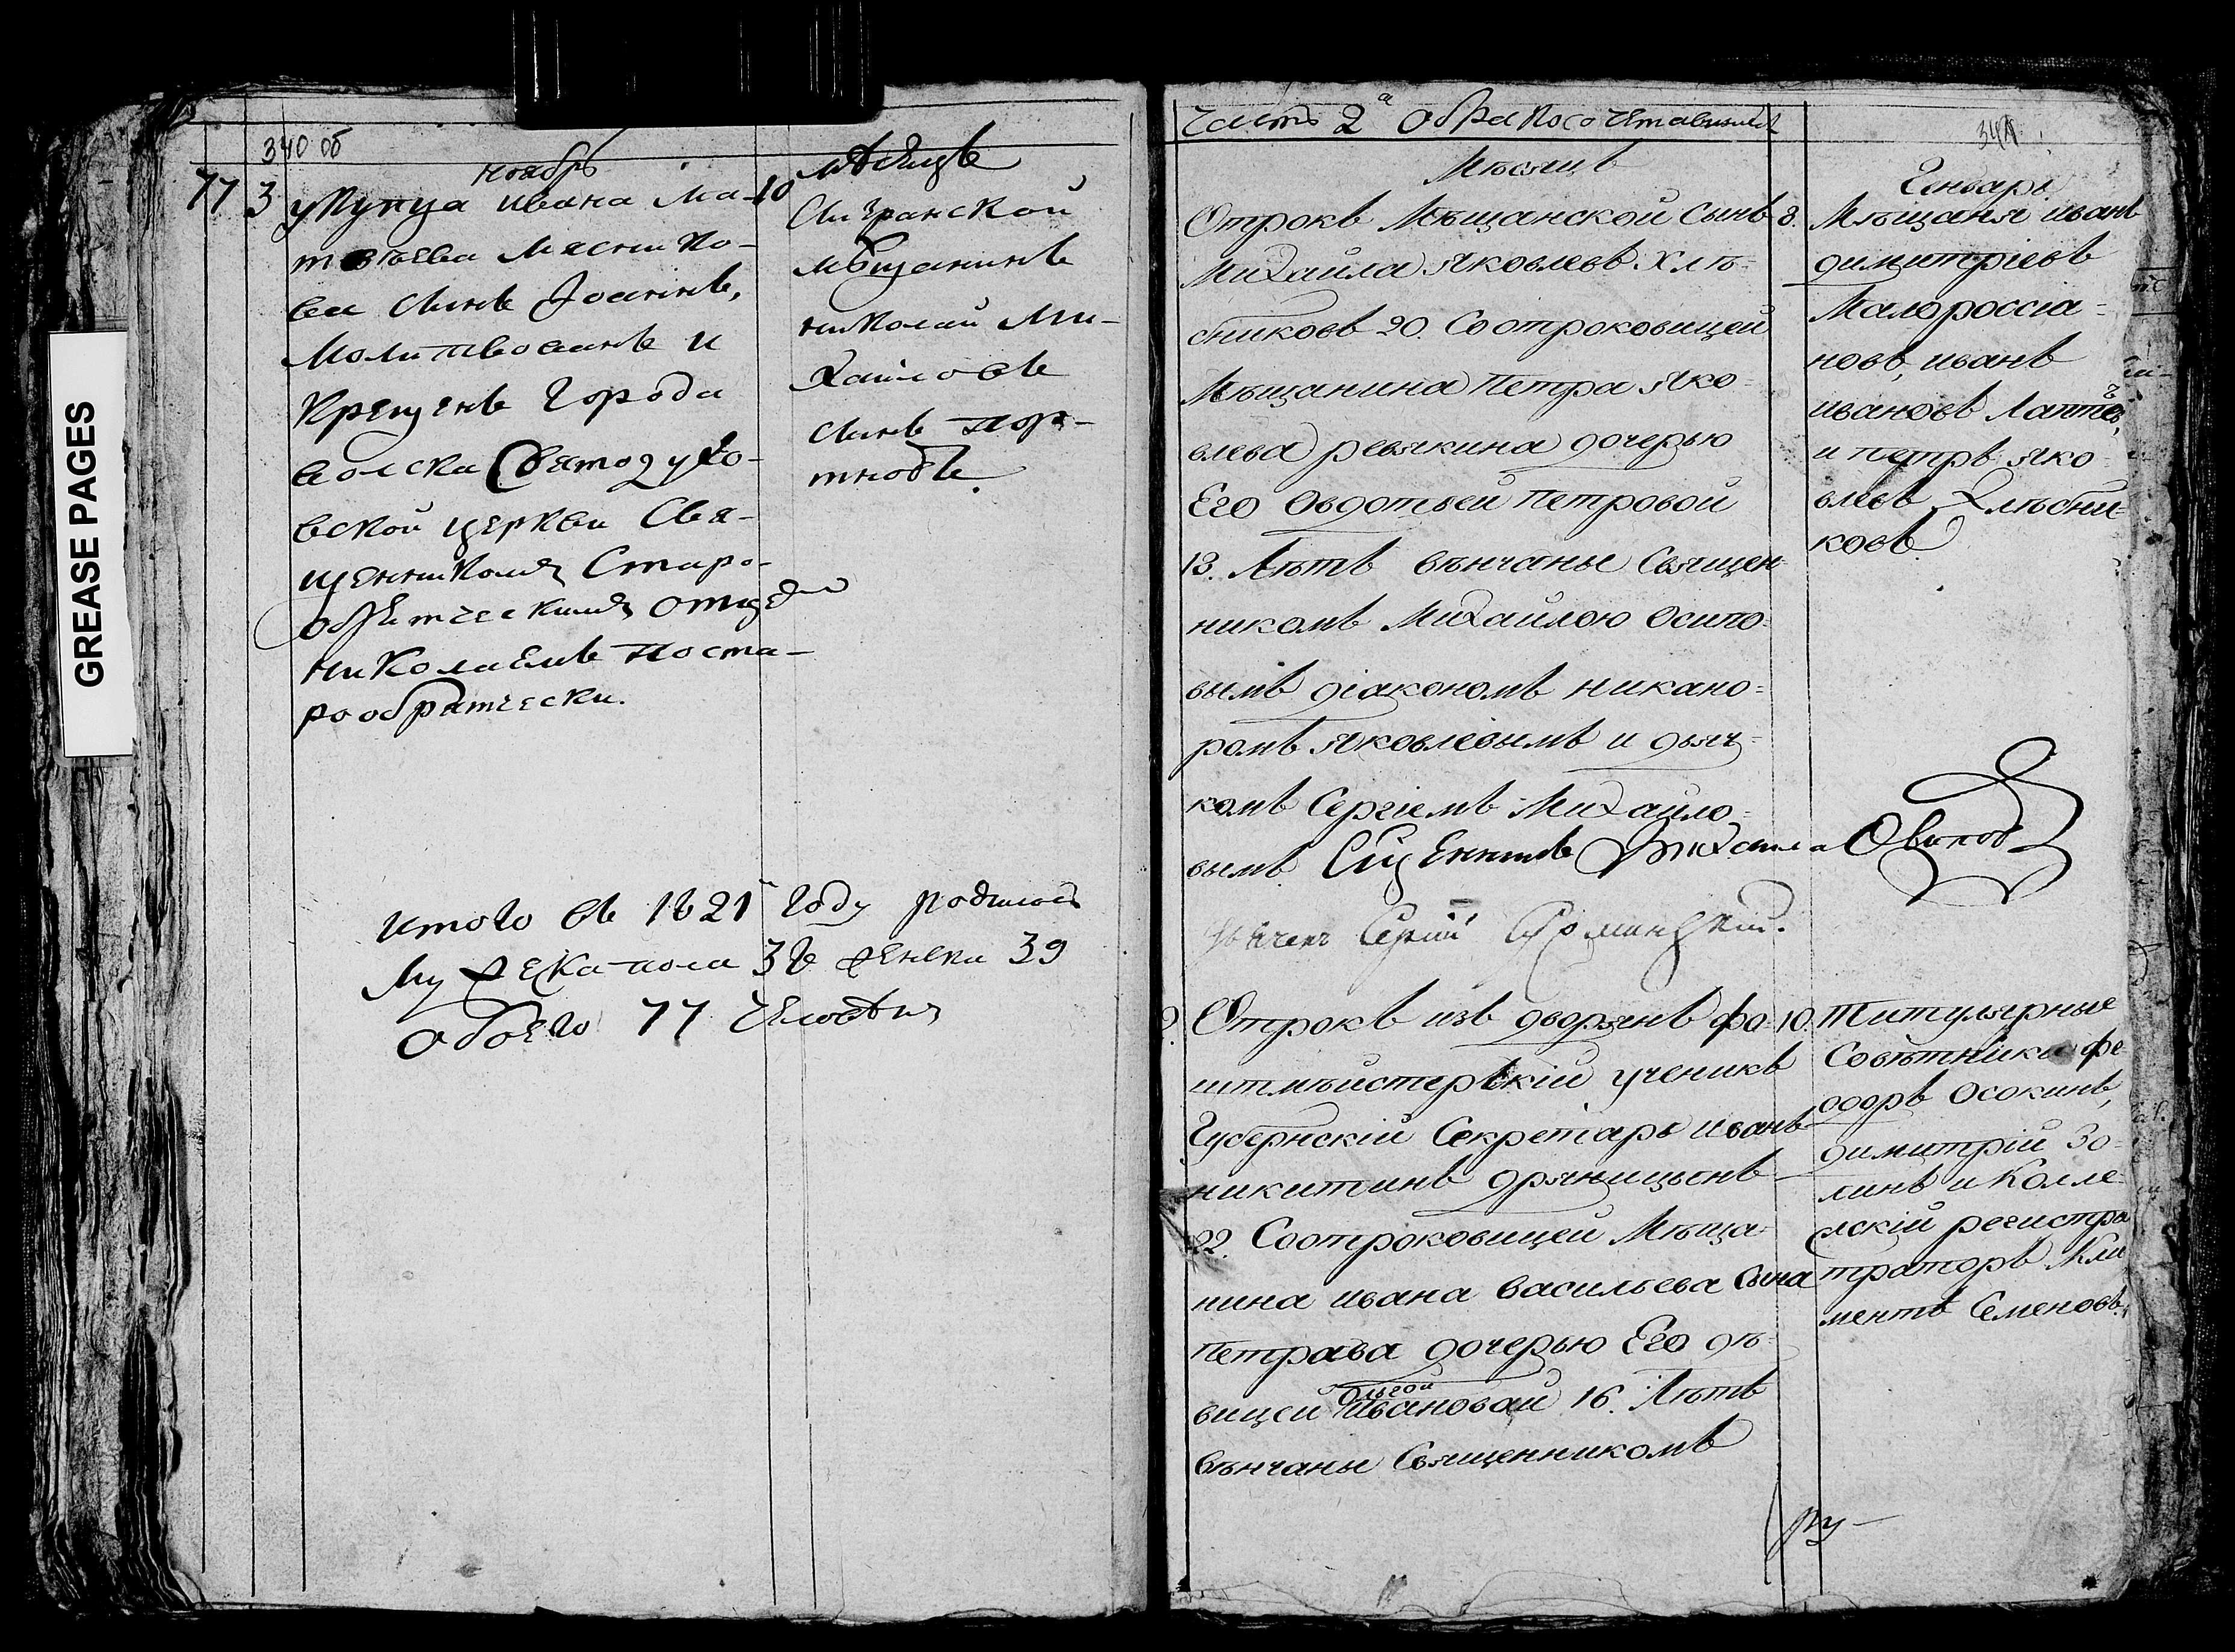 GREASE PAGES
340 об
ноябрь
мѣсяцъ
77
3
у купца ивана Ма-
твѣева Мяснико-
ва сынъ Іоаннъ,
молитвованъ и
крещенъ города
вольска Святодухо-
вской церкви Свя-
щенникомъ Старо-
обрятческимъ отцемъ
николаемъ поста-
рообрятчески.
10
Сызранской
мѣщанинъ
николай Ми-
хайловъ
сынъ пор-
тновъ.
итого въ 1821 году родилось
Мужеска пола 38 женска 39
обоего 77 человѣкъ
Часть 2я о бракосочетавшихся
341
Мѣсяцъ
Генварь
Отрокъ Мѣщанской сынъ
Михайла Яковлевъ Хлѣ=
бниковъ 20. Соотроковицей
Мѣщанина Петра Яко=
влева ревякина дочерью
Его Овдотьей Петровой
13. Лѣтъ вѣнчаны Священ
никомъ Михайлою Осипо=
вымъ діакономъ никано=
ромъ Яковлевымъ и дьяч=
комъ Сергіемъ Михайло=
вымъ. Сщенникъ Михаила
дьячекъ Сергий
8.
Мѣщаня иванъ
димитріевъ
Малороссія=
новъ, иванъ
ивановъ Лаптевъ,
и петръ Яко=
влевъ Хлѣбни=
ковъ
9.
Отрокъ изъ дворянъ фо=
штмѣйстерскій ученикъ
Губернскій Секретарь иванъ
никитинъ дряницынъ
22. Соотроковицей Мѣща=
нина ивана васильева сына
петрова дочерью Его дѣ=
вицей ольгой ивановой 16. Лѣтъ
вѣнчаны Священникомъ
10.
Титулярные
Совѣтники фе
одоръ Осокинъ,
димитрій Зо=
линъ и Колле=
жскій регистра
траторъ Кли
ментъ Семеновъ.